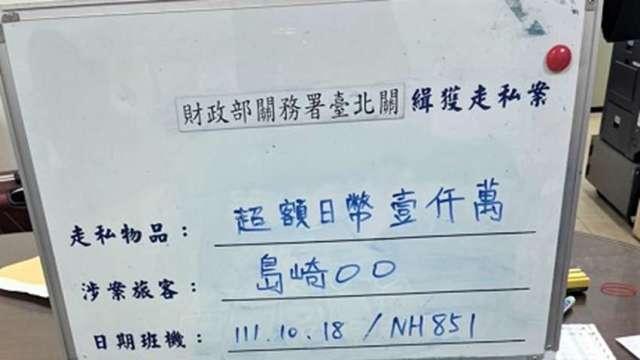 財政部關務署臺北關 緝獲走私案
走私物品： 超額日幣壹仟萬
涉案旅客： 島崎〇〇
日期班機： 111.10.18 / NH851